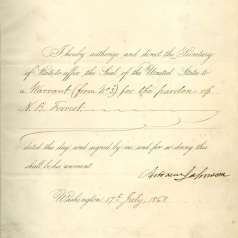 I hereby authorize and direct the Secretary
of State to affix the Seal of the United States to
a Warrant (from No 3) for the pardon of
N. B. Forrest
dated this day and signed by me, and for so doing this
shall be his warrant.
Andrew Johnson
Washington 17th July, 1868.